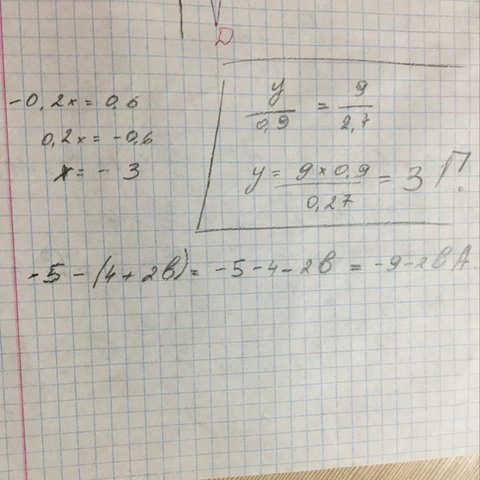 D
-0,2x = 0,6
0,2x = -0,6
x = - 3
y/0,9 = 9/2,7
y = 9×0,9/0,27 = 3 Г.
-5 - (4 + 2b) = -5 - 4 - 2b = -9 - 2b A